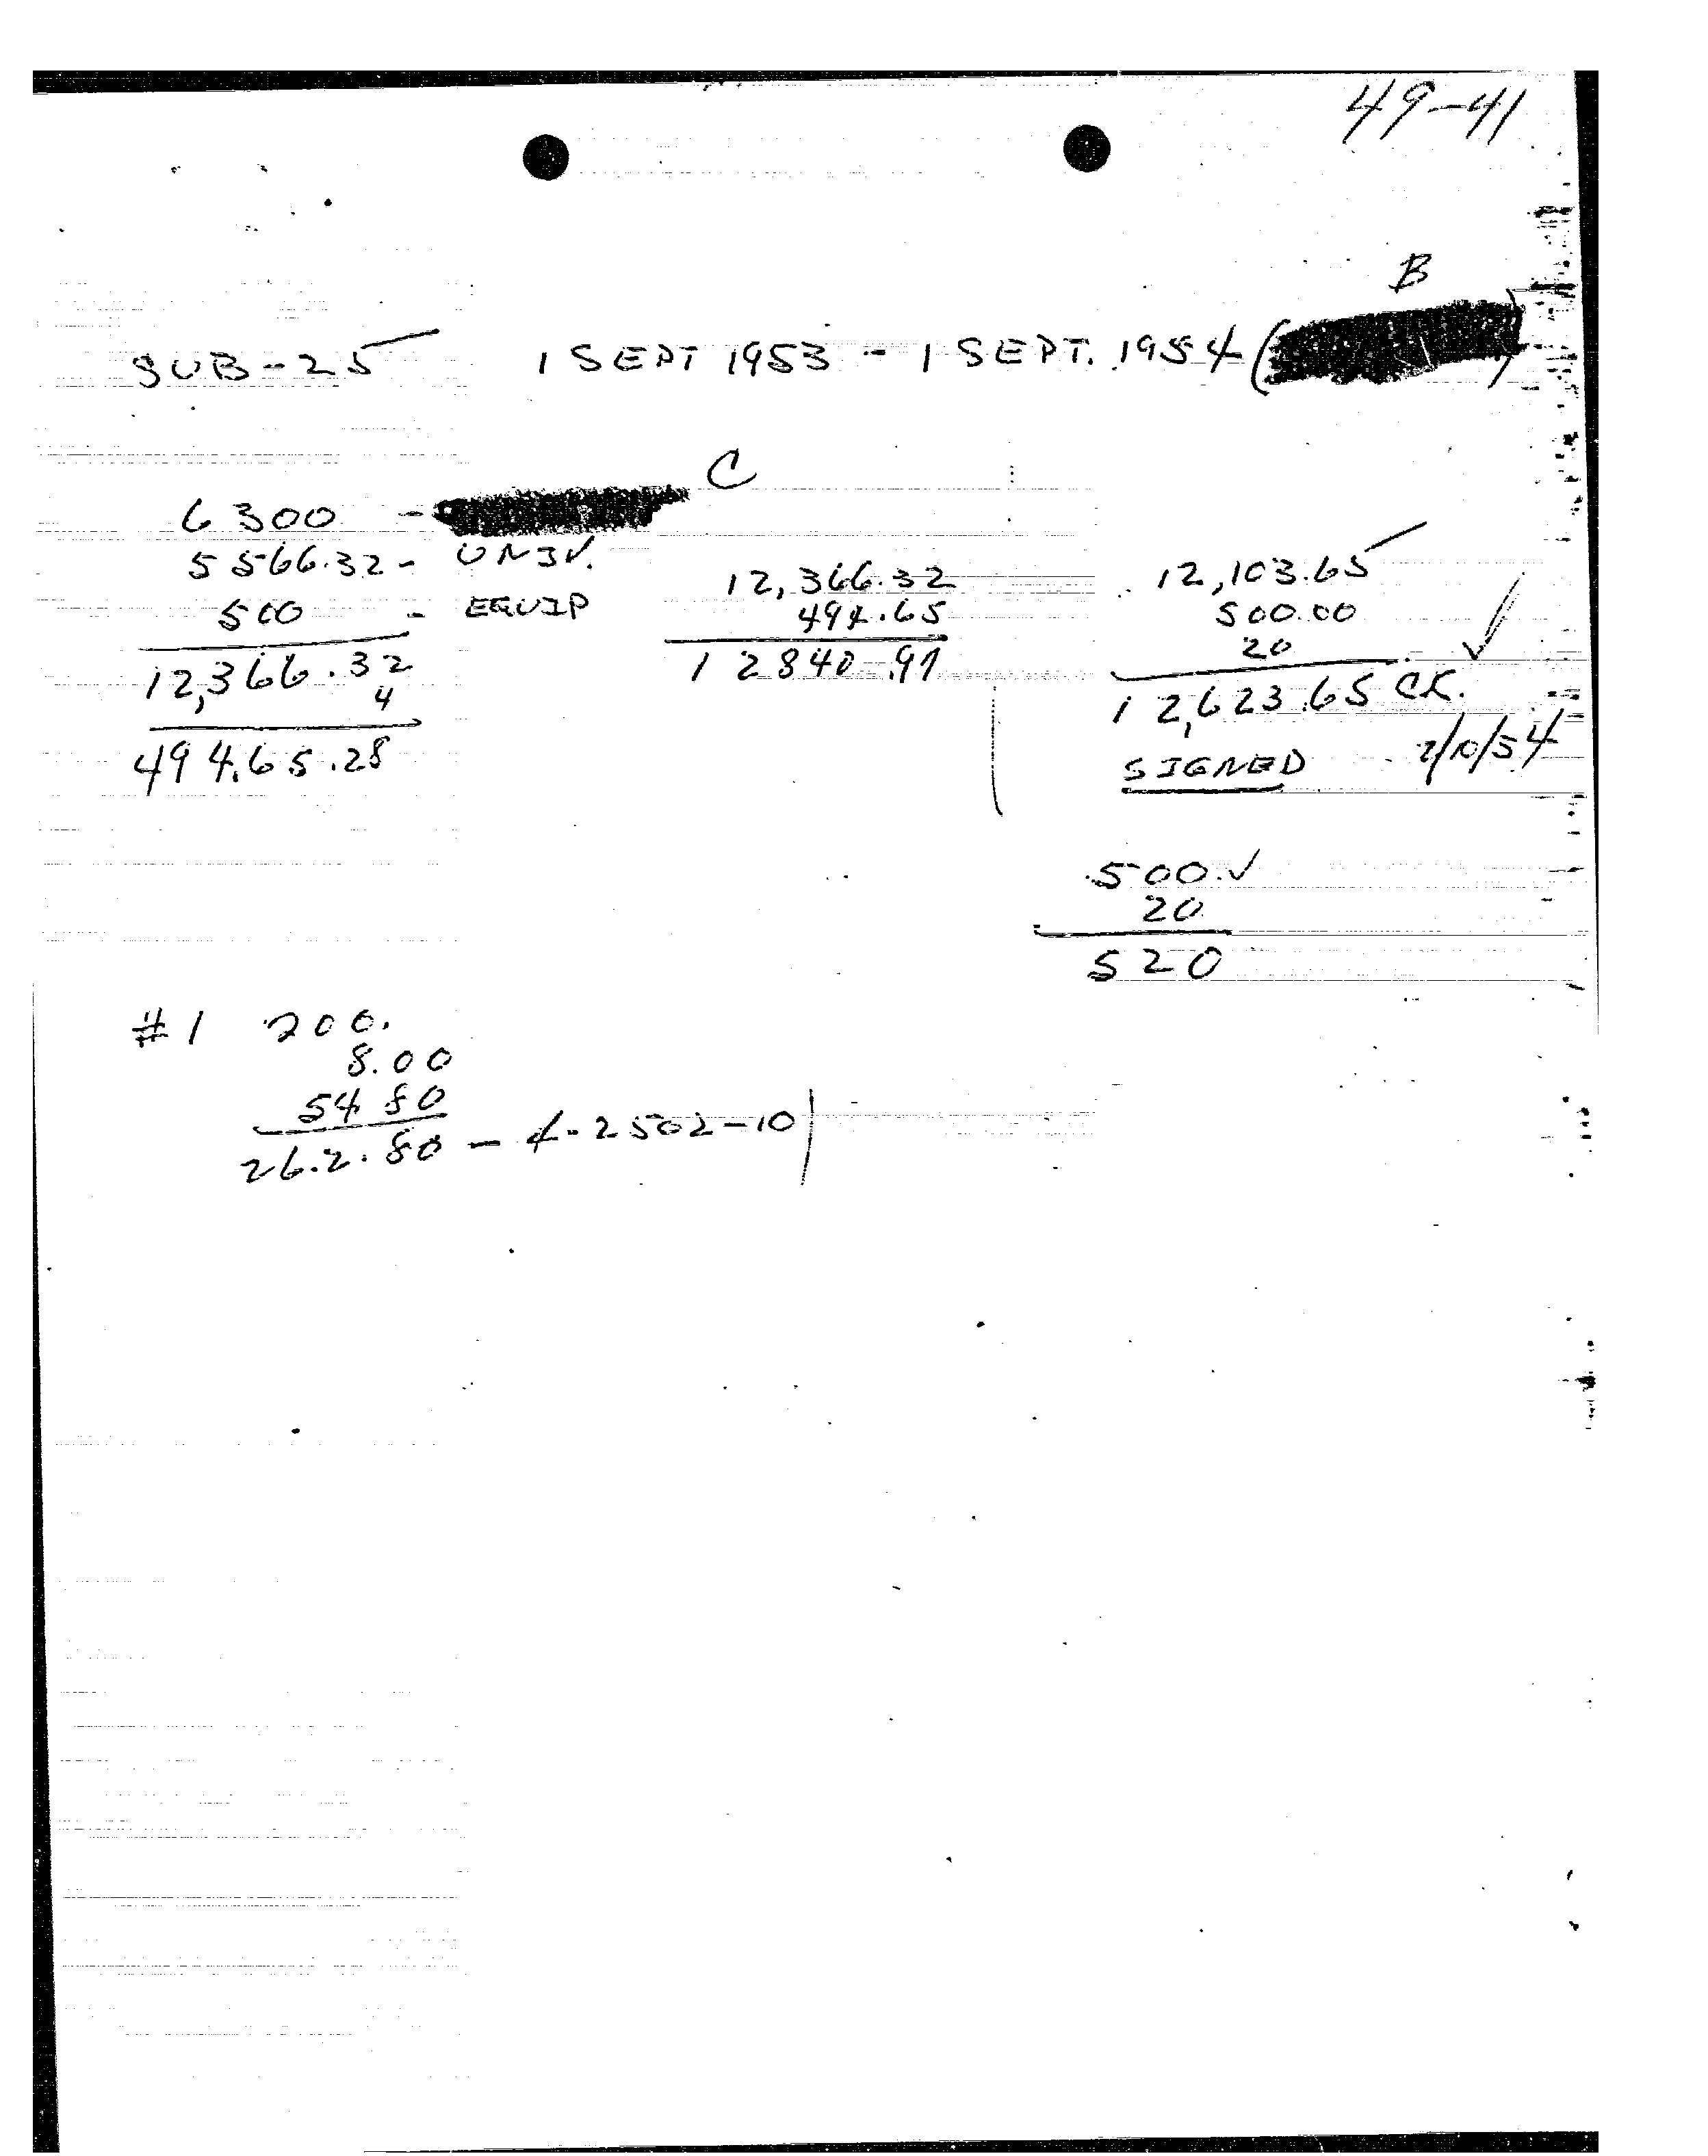 49-41
B
SUB-25 1 SEPT 1953 - 1 SEPT. 1954 (
C
6300 -
5566.32 - UNIV.
500 - EQUIP
12,366.32
4
494.65.28
12,366.32
494.65
12840.97
12,103.65
500.00
20
12,623.65 CK.
SIGNED 2/10/54
500.
20
520
#1 200.
8.00
54 80
262.80 - 4-2502-10